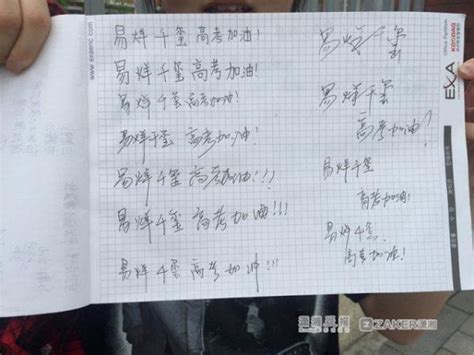 易烊千玺 高考加油!
易烊千玺 高考加油!
易烊千玺 高考加油!
易烊千玺 高考加油!
易烊千玺 高考加油!!!
易烊千玺 高考加油!!!
易烊千玺 高考加油!!!
易烊千玺
易烊千玺
高考加油!
易烊千玺
高考加油!
易烊千玺
高考加油!
www.exaenc.com
EXA
KOKSOND
Office Perfection
ZAKER潇湘